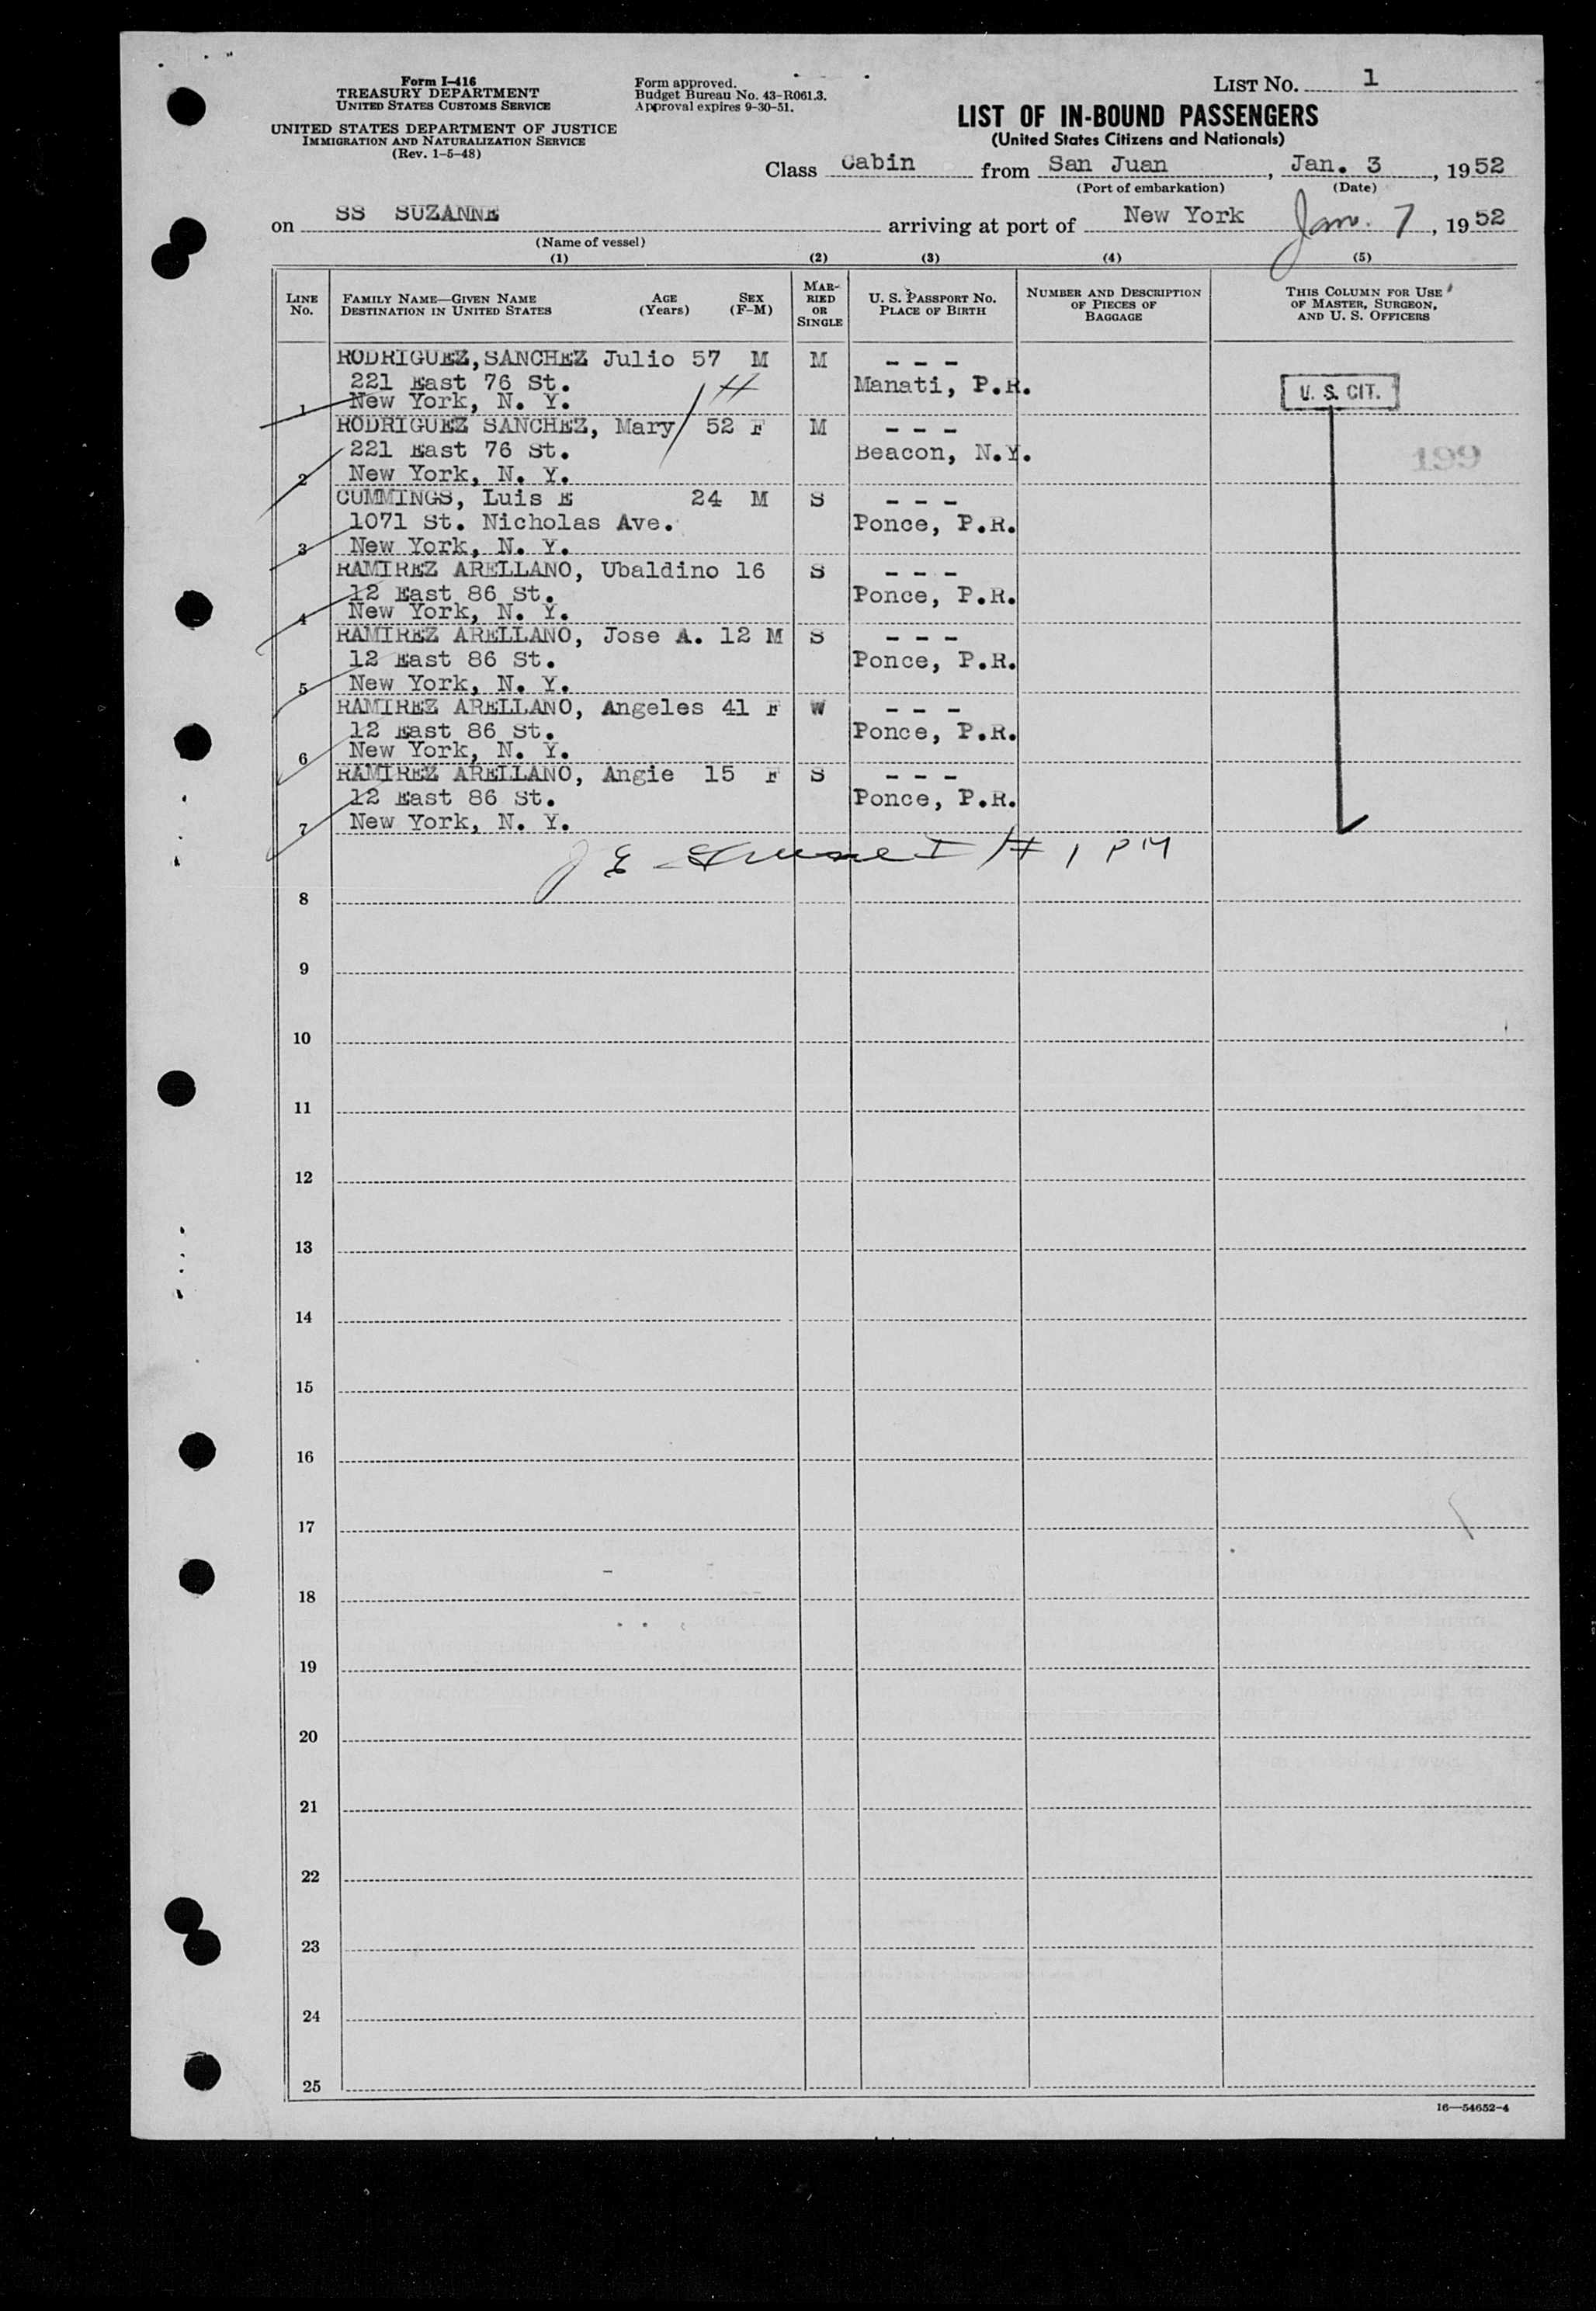 Form I-416
TREASURY DEPARTMENT
UNITED STATES CUSTOMS SERVICE
UNITED STATES DEPARTMENT OF JUSTICE
IMMIGRATION AND NATURALIZATION SERVICE
(Rev. 1-5-48)
Form approved.
Budget Bureau No. 43-R061.3.
Approval expires 9-30-51.
LIST NO. 1
LIST OF IN-BOUND PASSENGERS
(United States Citizens and Nationals)
Class Cabin from San Juan, Jan. 3, 1952
(Port of embarkation) (Date)
on SS SUZANNE arriving at port of New York Jan. 7, 1952
(Name of vessel)
(1) (2) (3) (4) (5)
LINE NO.
FAMILY NAME—GIVEN NAME
DESTINATION IN UNITED STATES
AGE (Years)
SEX (F-M)
MARRIED OR SINGLE
U. S. PASSPORT NO.
PLACE OF BIRTH
NUMBER AND DESCRIPTION
OF PIECES OF
BAGGAGE
THIS COLUMN FOR USE
OF MASTER, SURGEON,
AND U. S. OFFICERS
RODRIGUEZ, SANCHEZ Julio 57 M M - - -
221 East 76 St. Manati, P.R. U. S. CIT.
1 New York, N. Y.
RODRIGUEZ SANCHEZ, Mary 52 F M - - -
221 East 76 St. Beacon, N.Y. 199
2 New York, N. Y.
CUMMINGS, Luis E 24 M S - - -
1071 St. Nicholas Ave. Ponce, P.R.
3 New York, N. Y.
RAMIREZ ARELLANO, Ubaldino 16 S - - -
12 East 86 St. Ponce, P.R.
4 New York, N. Y.
RAMIREZ ARELLANO, Jose A. 12 M S - - -
12 East 86 St. Ponce, P.R.
5 New York, N. Y.
RAMIREZ ARELLANO, Angeles 41 F W - - -
12 East 86 St. Ponce, P.R.
6 New York, N. Y.
RAMIREZ ARELLANO, Angie 15 F S - - -
12 East 86 St. Ponce, P.R.
7 New York, N. Y.
1 PM
8
9
10
11
12
13
14
15
16
17
18
19
20
21
22
23
24
25
16—54652-4